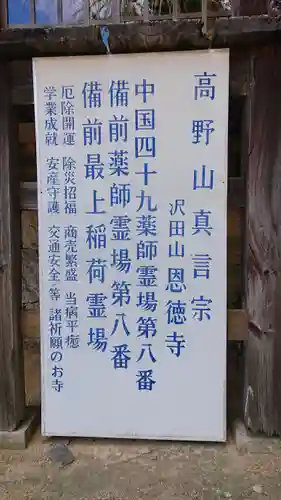 高野山真言宗
沢田山 恩徳寺
中国四十九薬師霊場第八番
備前薬師霊場第八番
備前最上稲荷霊場
厄除開運 除災招福 商売繁盛 当病平癒
学業成就 安産守護 交通安全 等 諸祈願のお寺